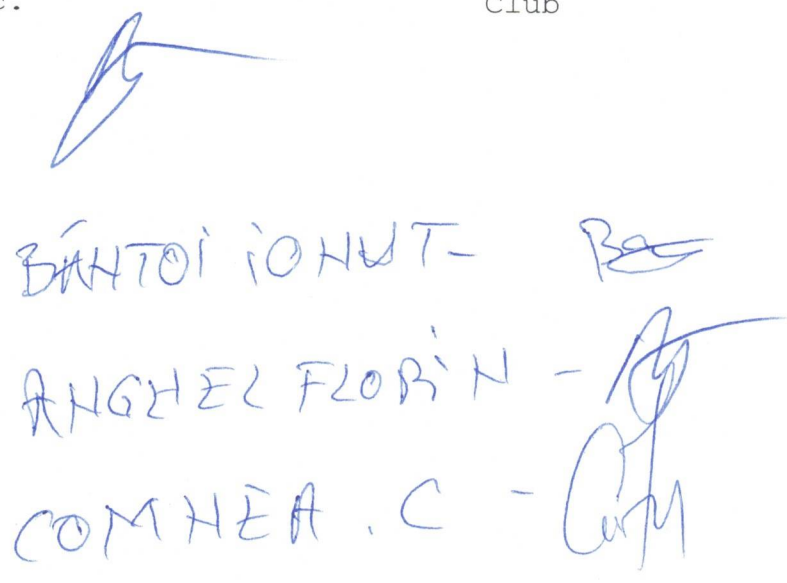 Club
BĂNTOI IONUT-
ANGHEL FLORIN -
COMNEA . C -